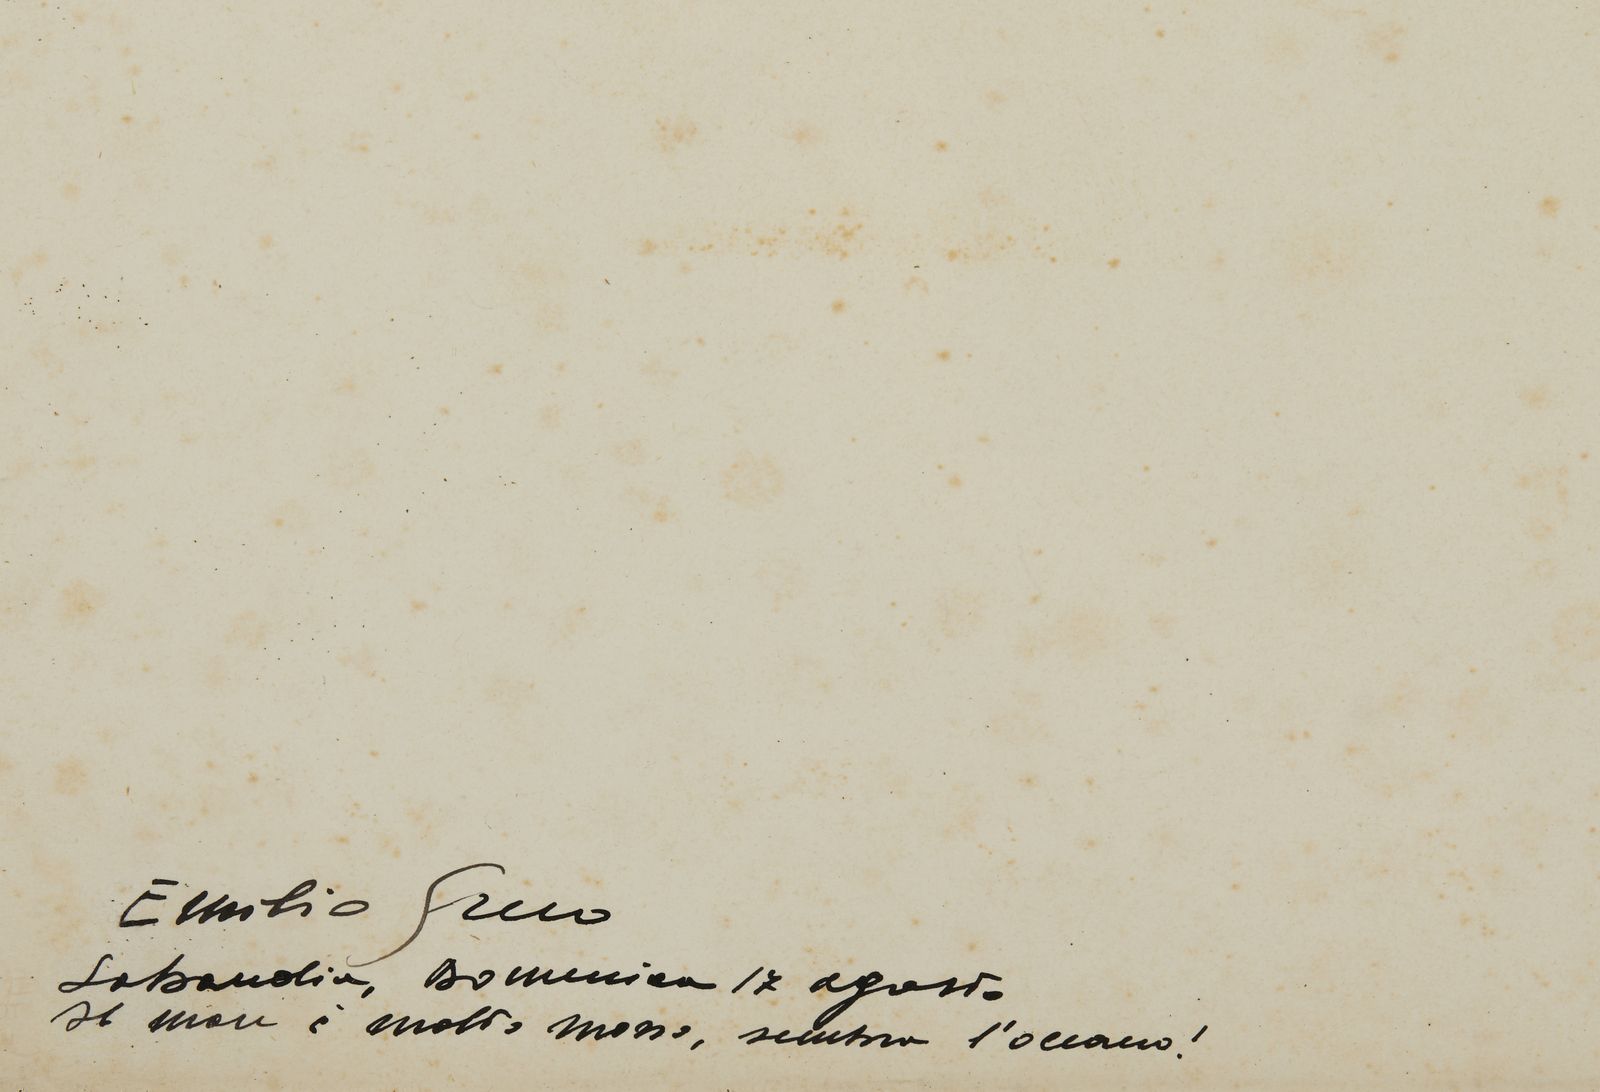 Emilio Greco
Sabaudia, Domenica 17 agosto
Il mare è molto mosso, sembra l'oceano!